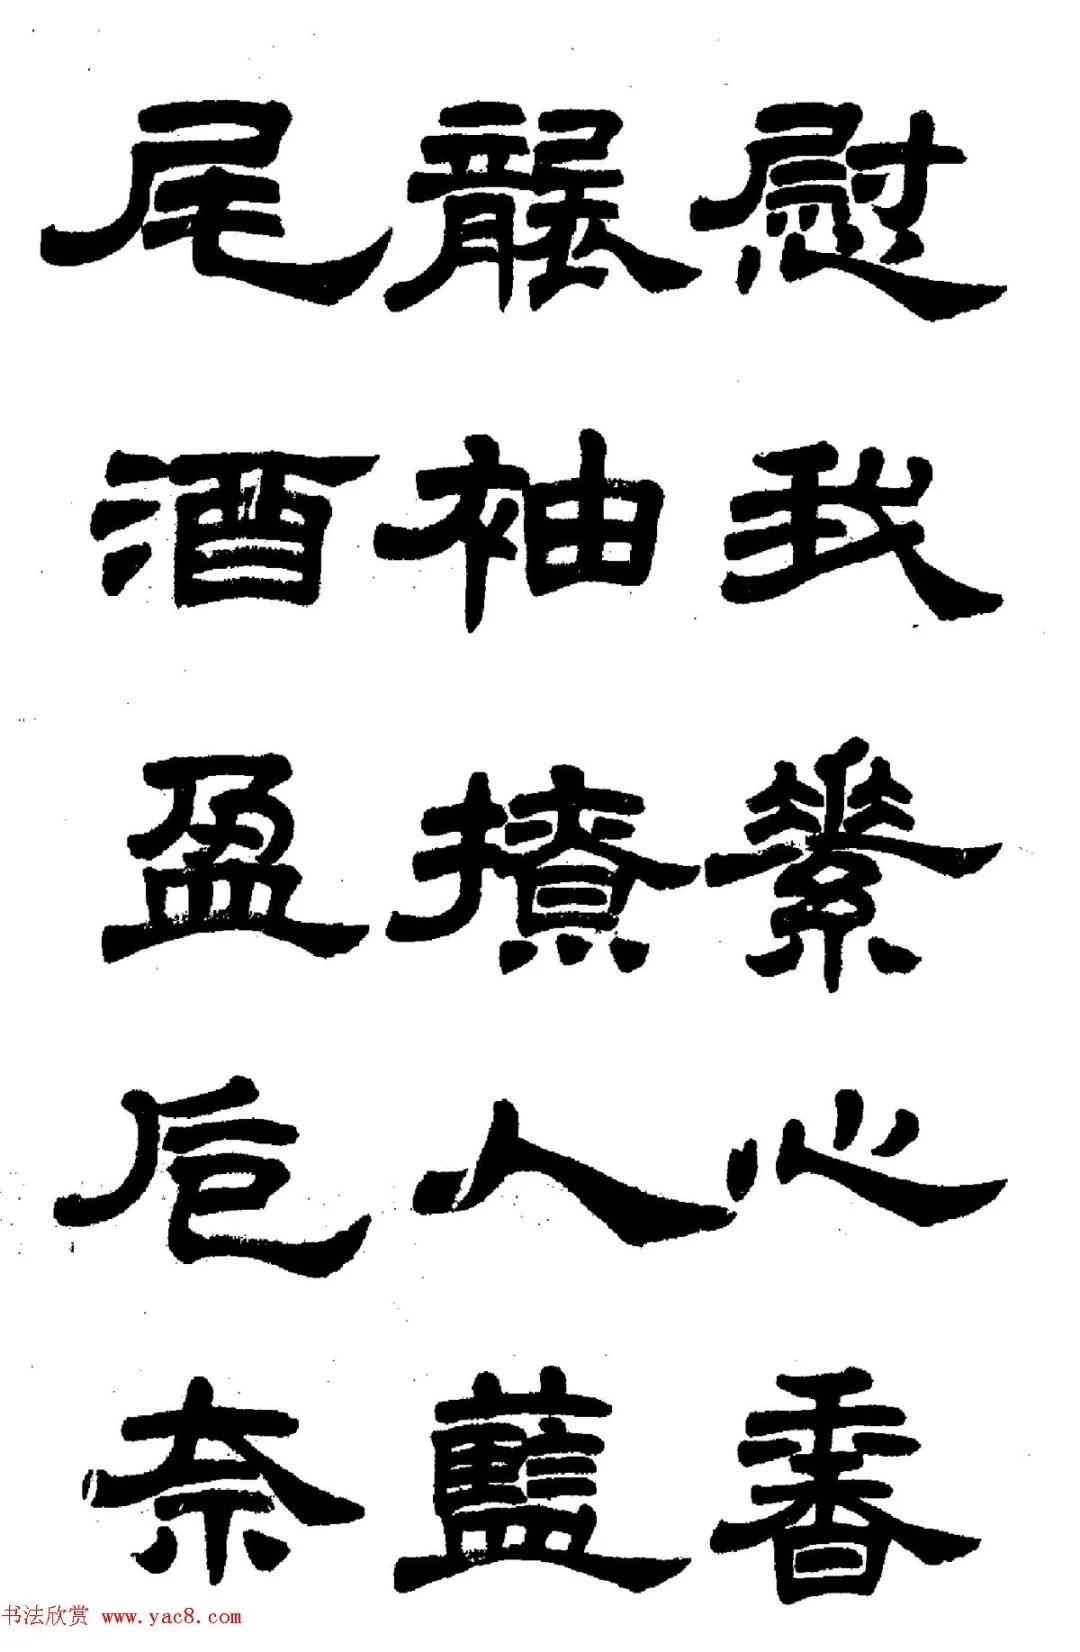 慰我素心香
襲袖撩人藍
尾酒盈卮奈
书法欣赏 www.yac8.com